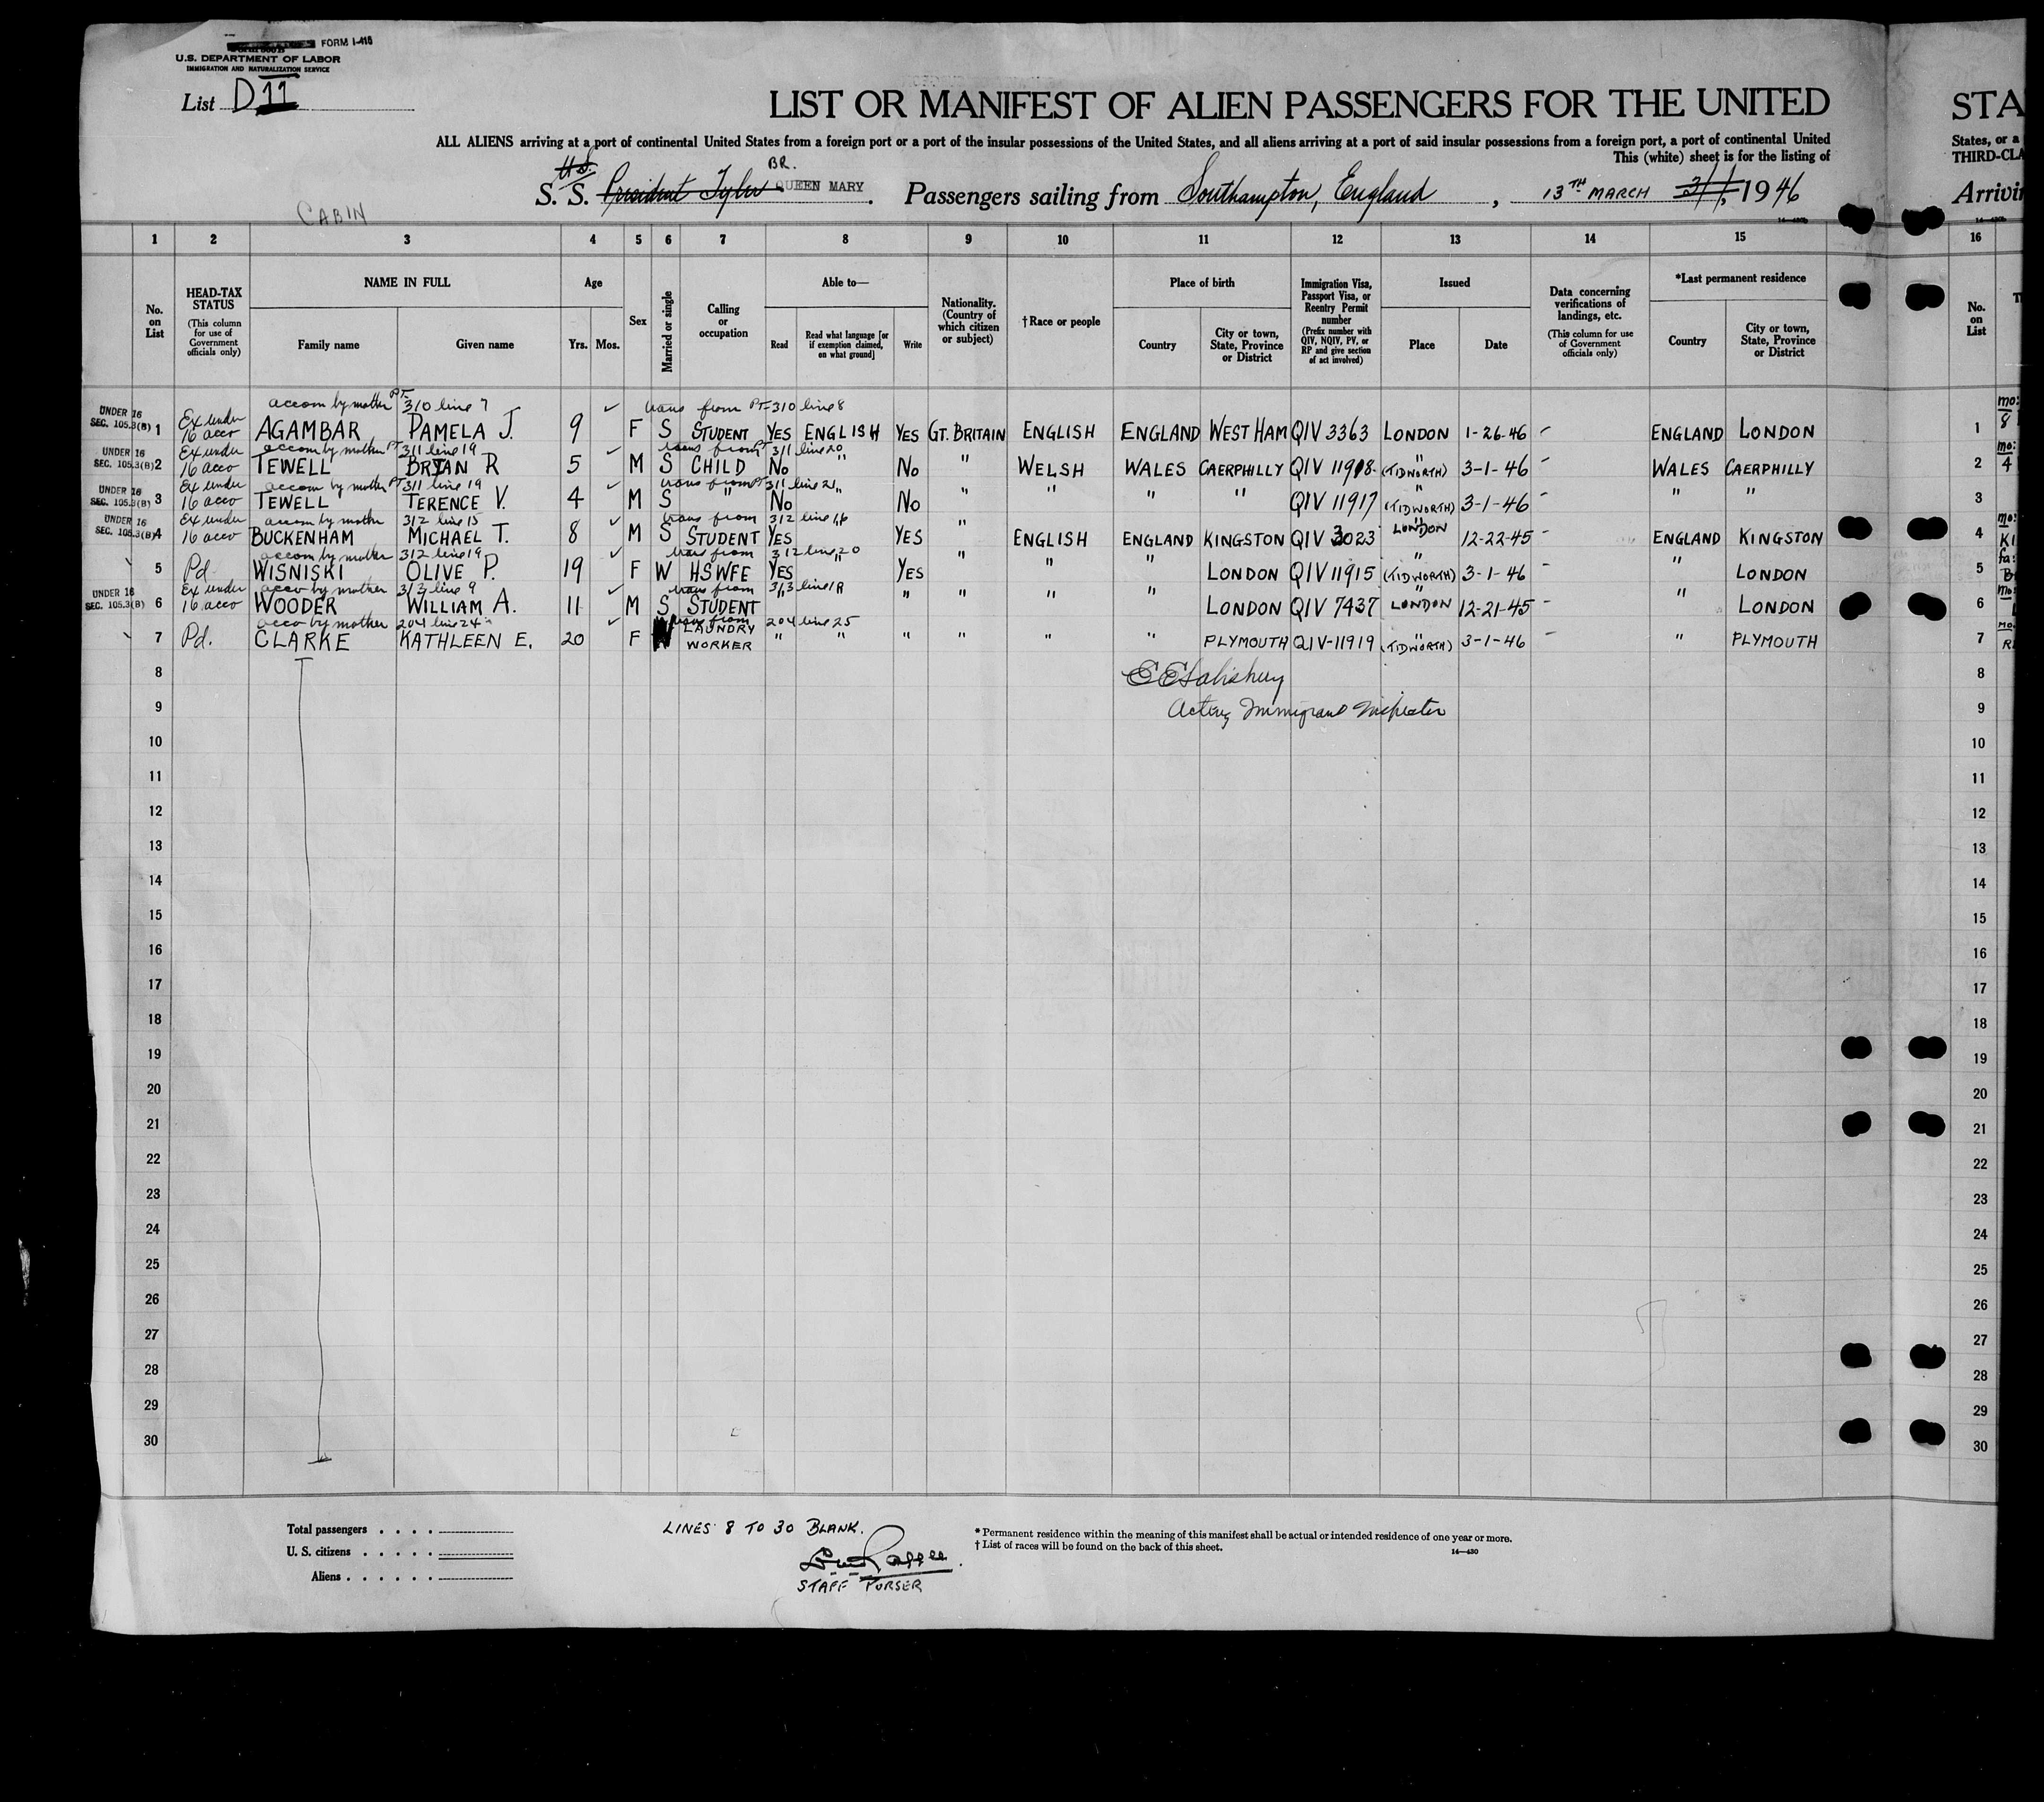 FORM I-415
U.S. DEPARTMENT OF LABOR
IMMIGRATION AND NATURALIZATION SERVICE
List D11
LIST OR MANIFEST OF ALIEN PASSENGERS FOR THE UNITED STA
ALL ALIENS arriving at a port of continental United States from a foreign port or a port of the insular possessions of the United States, and all aliens arriving at a port of said insular possessions from a foreign port, a port of continental United States, or a
This (white) sheet is for the listing of THIRD-CLA
CABIN
S. S. President Tyler BR. QUEEN MARY. Passengers sailing from Southampton, England, 13TH MARCH 1946 Arrivin
1 2 3 4 5 6 7 8 9 10 11 12 13 14 15 16
No. on List
HEAD-TAX STATUS (This column for use of Government officials only)
NAME IN FULL Family name Given name
Age Yrs. Mos.
Sex
Married or single
Calling or occupation
Able to— Read Read what language [or if exemption claimed, on what ground] Write
Nationality. (Country of which citizen or subject)
†Race or people
Place of birth Country City or town, State, Province or District
Immigration Visa, Passport Visa, or Reentry Permit number (Prefix number with QIV, NQIV, PV, or RP and give section of act involved)
Issued Place Date
Data concerning verifications of landings, etc. (This column for use of Government officials only)
*Last permanent residence Country City or town, State, Province or District
No. on List
accom by mother PT-310 line 7 trans from PT-310 line 8
UNDER 16 SEC. 105.3(B) 1 Ex under 16 acco AGAMBAR PAMELA J. 9 F S STUDENT YES ENGLISH YES GT. BRITAIN ENGLISH ENGLAND WEST HAM QIV 3363 LONDON 1-26-46 ENGLAND LONDON 1
accom by mother PT 311 line 19 trans from PT 311 line 20
UNDER 16 SEC. 105.3(B) 2 Ex under 16 acco TEWELL BRIAN R 5 M S CHILD No " No " WELSH WALES CAERPHILLY QIV 11918 " (TIDWORTH) 3-1-46 WALES CAERPHILLY 2
accom by mother PT 311 line 19 trans from PT 311 line 21
UNDER 16 SEC. 105.3(B) 3 Ex under 16 acco TEWELL TERENCE V. 4 M S " No " No " " " " QIV 11917 " (TIDWORTH) 3-1-46 " " 3
accom by mother 312 line 15 trans from 312 line 16
UNDER 16 SEC. 105.3(B) 4 Ex under 16 acco BUCKENHAM MICHAEL T. 8 M S STUDENT YES " YES " ENGLISH ENGLAND KINGSTON QIV 3023 LONDON 12-22-45 ENGLAND KINGSTON 4
accom by mother 312 line 19 trans from 312 line 20
5 Pd. WISNISKI OLIVE P. 19 F W HSWFE YES " YES " " " LONDON QIV 11915 " (TIDWORTH) 3-1-46 " LONDON 5
acco by mother 313 line 9 trans from 313 line
UNDER 16 SEC. 105.3(B) 6 Ex under 16 acco WOODER WILLIAM A. 11 M S STUDENT " " " " " " LONDON QIV 7437 LONDON 12-21-45 " LONDON 6
acco by mother 204 line 24 trans from 204 line 25
7 Pd. CLARKE KATHLEEN E. 20 F LAUNDRY WORKER " " " " " " PLYMOUTH QIV-11919 " (TIDWORTH) 3-1-46 " PLYMOUTH 7
8 E E Salisbury 8
9 Acting Immigrant Inspector 9
10 10
11 11
12 12
13 13
14 14
15 15
16 16
17 17
18 18
19 19
20 20
21 21
22 22
23 23
24 24
25 25
26 26
27 27
28 28
29 29
30 30
Total passengers . . . .
U. S. citizens . . . . .
Aliens . . . . . .
LINES 8 TO 30 BLANK.
STAFF PURSER
* Permanent residence within the meaning of this manifest shall be actual or intended residence of one year or more.
† List of races will be found on the back of this sheet.
14—430